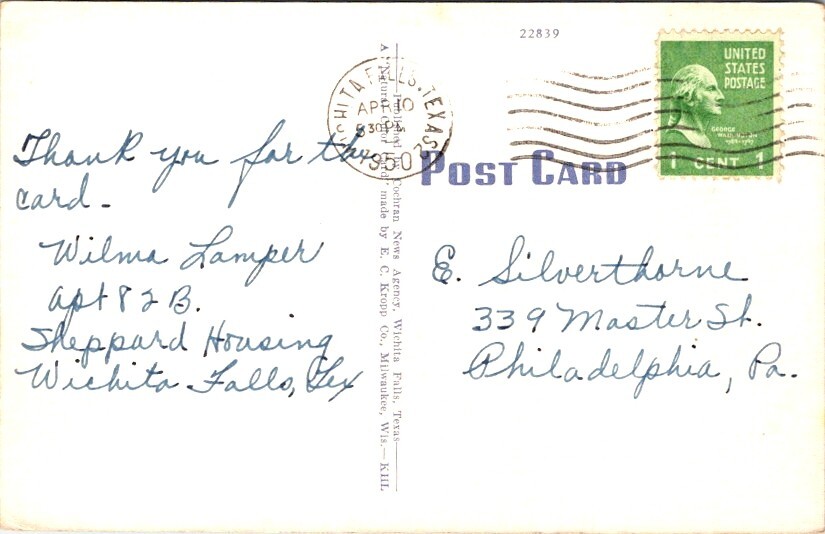 22839
UNITED
STATES
POSTAGE
GEORGE
WASHINGTON
1 CENT 1
WICHITA FALLS, TEXAS
APR 10
5 30 PM
1950
POST CARD
Thank you for the
card.
Wilma Lamper
Apt 82 B.
Sheppard Housing
Wichita Falls, Tex
E. Silverthorne
339 Master St.
Philadelphia, Pa.
Published by Cochran News Agency, Wichita Falls, Texas
A "Natural Color Card" made by E. C. Kropp Co., Milwaukee, Wis.—KHL